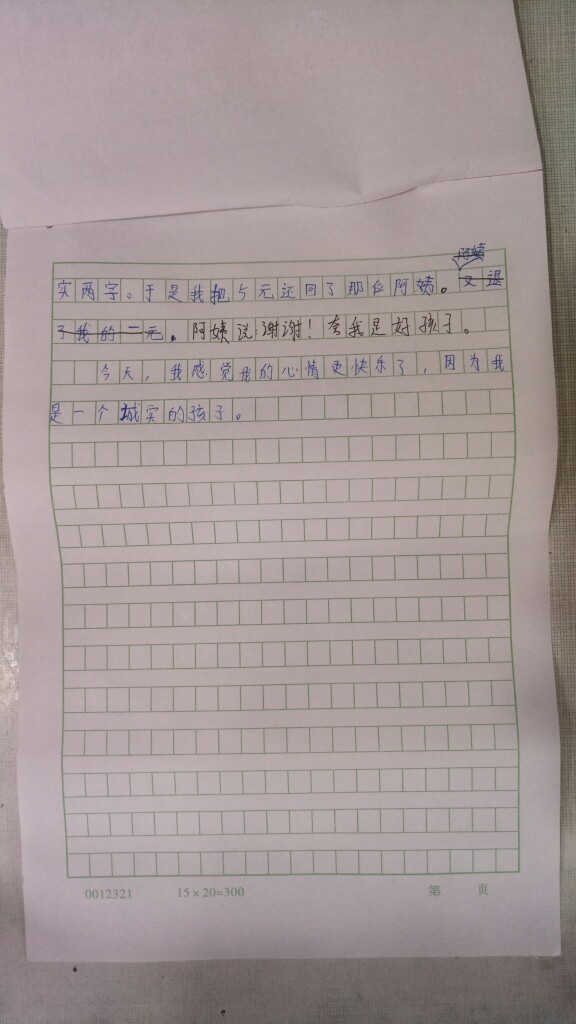 阿姨
实两字。于是我把5元还回了那位阿姨。又退
了我的二元。阿姨说:谢谢!夸我是好孩子。
今天,我感觉我的心情更快乐了,因为我
是一个诚实的孩子。
0012321 15×20=300 第 页